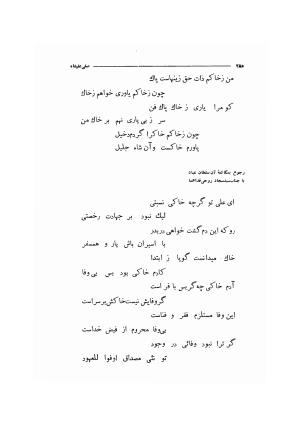 ۲۵۵ صفی علیشاه
من زخاکم ذات حق زینهاست پاك
چون زخاکم یاوری خواهم زخاك
کو مرا یاری ز خاك پاك فن
سر ز بی یاری نهم بر خاك من
چون زخاکم خاکرا گردم دخیل
یاورم خاکست و آن شاه جلیل
رجوع بمکالمهٔ آن سلطان عباد
با جناب سید سجاد روحی فداهما
ای علی تو گرچه خاکی نسبتی
لیك نبود بر جهادت رخصتی
رو که این دم گشت خواهی دربدر
با اسیران باش یار و همسفر
خاك میدانست گویا ز ابتدا
کادم خاکی بود بس بی وفا
آدم خاکی چه گریس با فر است
گر وفایش نیست خاکش بر سر است
این وفا مستلزم فقر و فناست
بی وفا محروم از فیض خداست
گر ترا نبود وفائی در وجود
تو نئی مصداق اوفوا للعهود